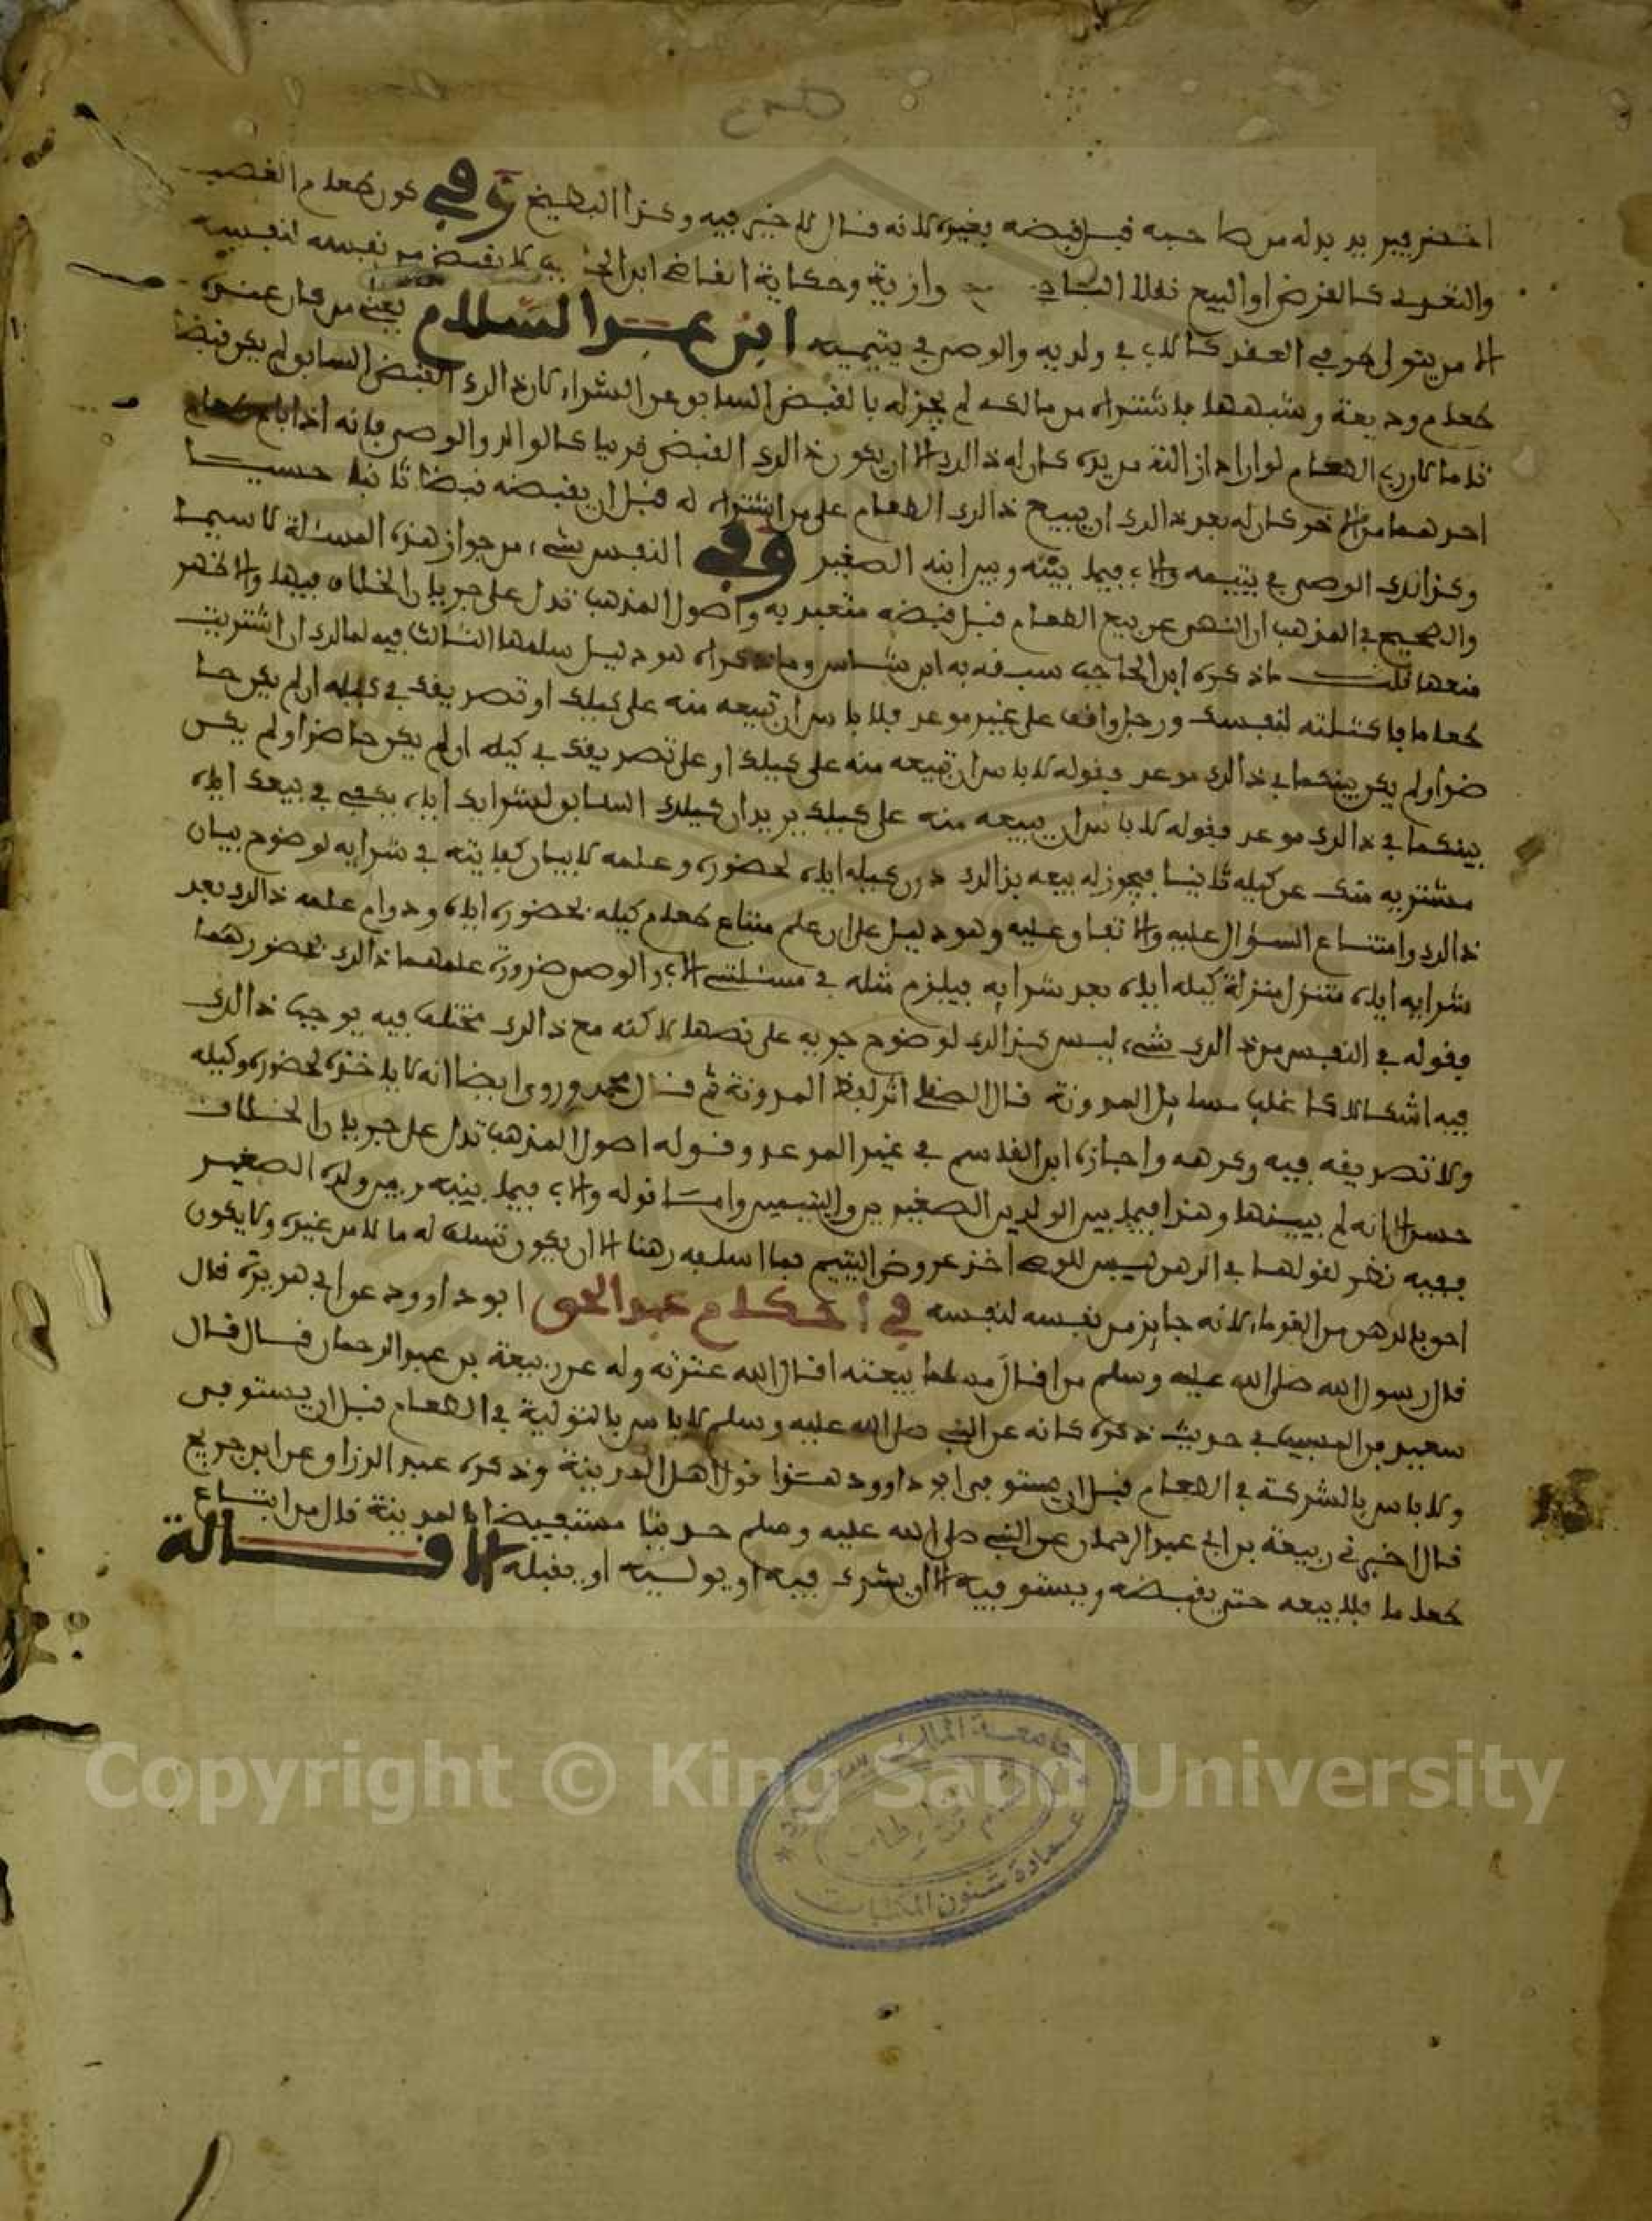 اخضر فيريد بدله من صاحبه قبل قبضه بغيره لانه قال لا خير فيه وكذا البطيخ وفي كون طعام الغصب
والتعدي كالقرض او البيع نقلا الباجي وحكاية القاضي ابن لا تقبض من نفسه لنفسه
الا من يتولى طرفي العقد كالاب في ولديه والوصي في يتيميه ابن عبد السلام يعني من كان عنده
طعام وديعة وشبهها فاشتراه من مالكه لم يجز له بالقبض السابق عن الشراء كان ذالك القبض السابق لم يكن قبضا
تاما كان رب الطعام لو اراد ازالته من يده كان له ذالك الا ان يكون ذالك القبض قويا كالوالد والوصي فانه اذا باع طعام
احدهما من الاخر كان له بعد ذالك ان يبيع ذالك الطعام على من اشتراه له قبل ان يقبضه قبضا ثانيا حسيا
وكذالك الوصي في يتيمه والاب فيما بينه وبين ابنه الصغير وفي النفس شيء من جواز هذه المسئلة لا سيما
والصحيح في المذهب ان النهي عن بيع الطعام قبل قبضه متعبد به واصول المذهب تدل على جريان الخلاف فيها والاظهر
منعها قلت ما ذكره ابن الحاجب سبقه به ابن شاس وما ذكراه هو دليل سلمها الثالث فيه لمالك ان اشتريت
طعاما فاكتلته لنفسك ورجل واقف على غير موعد فلا باس ان تبيعه منه على كيلك او تصريفك في كيله ان لم يكن حا
ضرا ولم يكن بينكما في ذالك موعد فقوله لا باس ان تبيعه منه على كيلك او على تصريفك في كيله ان لم يكن حاضرا ولم يكن
بينكما في ذالك موعد فقوله لا باس ان يبيعه منه على كيلك يريد ان كيلك السابق لشرايك اياه يكفي في بيعك اياه
مشتريه منك عن كيله ثانيا فيجوز له بيعه بذالك دون كيله اياه لحضوره وعلمه لا ببيان كفايته في شرايه لوضوح بيان
ذالك وامتناع السؤال عليه والاتفاق عليه وهو دليل على ان علم مبتاع طعام كيله بحضوره اياه ودوام علمه ذالك بعد
شرايه اياه متنزل منزلة كيله اياه بعد شرايه فيلزم مثله في مسئلتي الاب والوصي ضرورة علمهما ذالك بحضورهما
فقوله في النفس من ذالك شيء ليس كذالك لوضوح جريه على نصها لاكنه مع ذالك مختلف فيه يوجب ذالك
فيه اشكالا كاغلب مسايل المدونة قال الصقلي اثر لفظ المدونة ثم قال محمد وروى ايضا انه لا ياخذه لحضوره كيله
ولا تصريفه فيه وكرهه واجازه ابن القاسم في غير الموعد وقوله اصول المذهب تدل على جريان الخلاف
حسن الا انه لم يبينها وهذا فيما بين الولدين الصغيرين واليتيمين واما قوله والاب فيما بينه وبين ولده الصغير
ففيه نظر لقولها في الرهن ليس للوصي اخذ عروض اليتيم بما اسلفه رهنا الا ان يكون تسلف له مالا من غيره ولا يكون
احق بالرهن من الغرماء لانه جايز من نفسه لنفسه في احكام عبد الحق ابو داوود عن ابي هريرة قال
قال رسول الله صلى الله عليه وسلم من اقال مسلما بيعته اقال الله عثرته وله عن ربيعة بن عبد الرحمان قال قال
سعيد بن المسيب في حديث ذكره كانه عن النبي صلى الله عليه وسلم لا باس بالتولية في الطعام قبل ان يستوفى
ولا باس بالشركة في الطعام قبل ان يستوفى ابو داوود هذا قول اهل المدينة وذكره عبد الرزاق عن ابن جريج
قال اخبرني ربيعة بن ابي عبد الرحمان عن النبي صلى الله عليه وسلم حديثا مستفيضا بالمدينة قال من ابتاع
طعاما فلا يبيعه حتى يقبضه ويستوفيه الا ان يشرك فيه او يوليه او يقيله الاقالة
جامعة الملك سعود
قسم المخطوطات
عمادة شئون المكتبات
Copyright © King Saud University